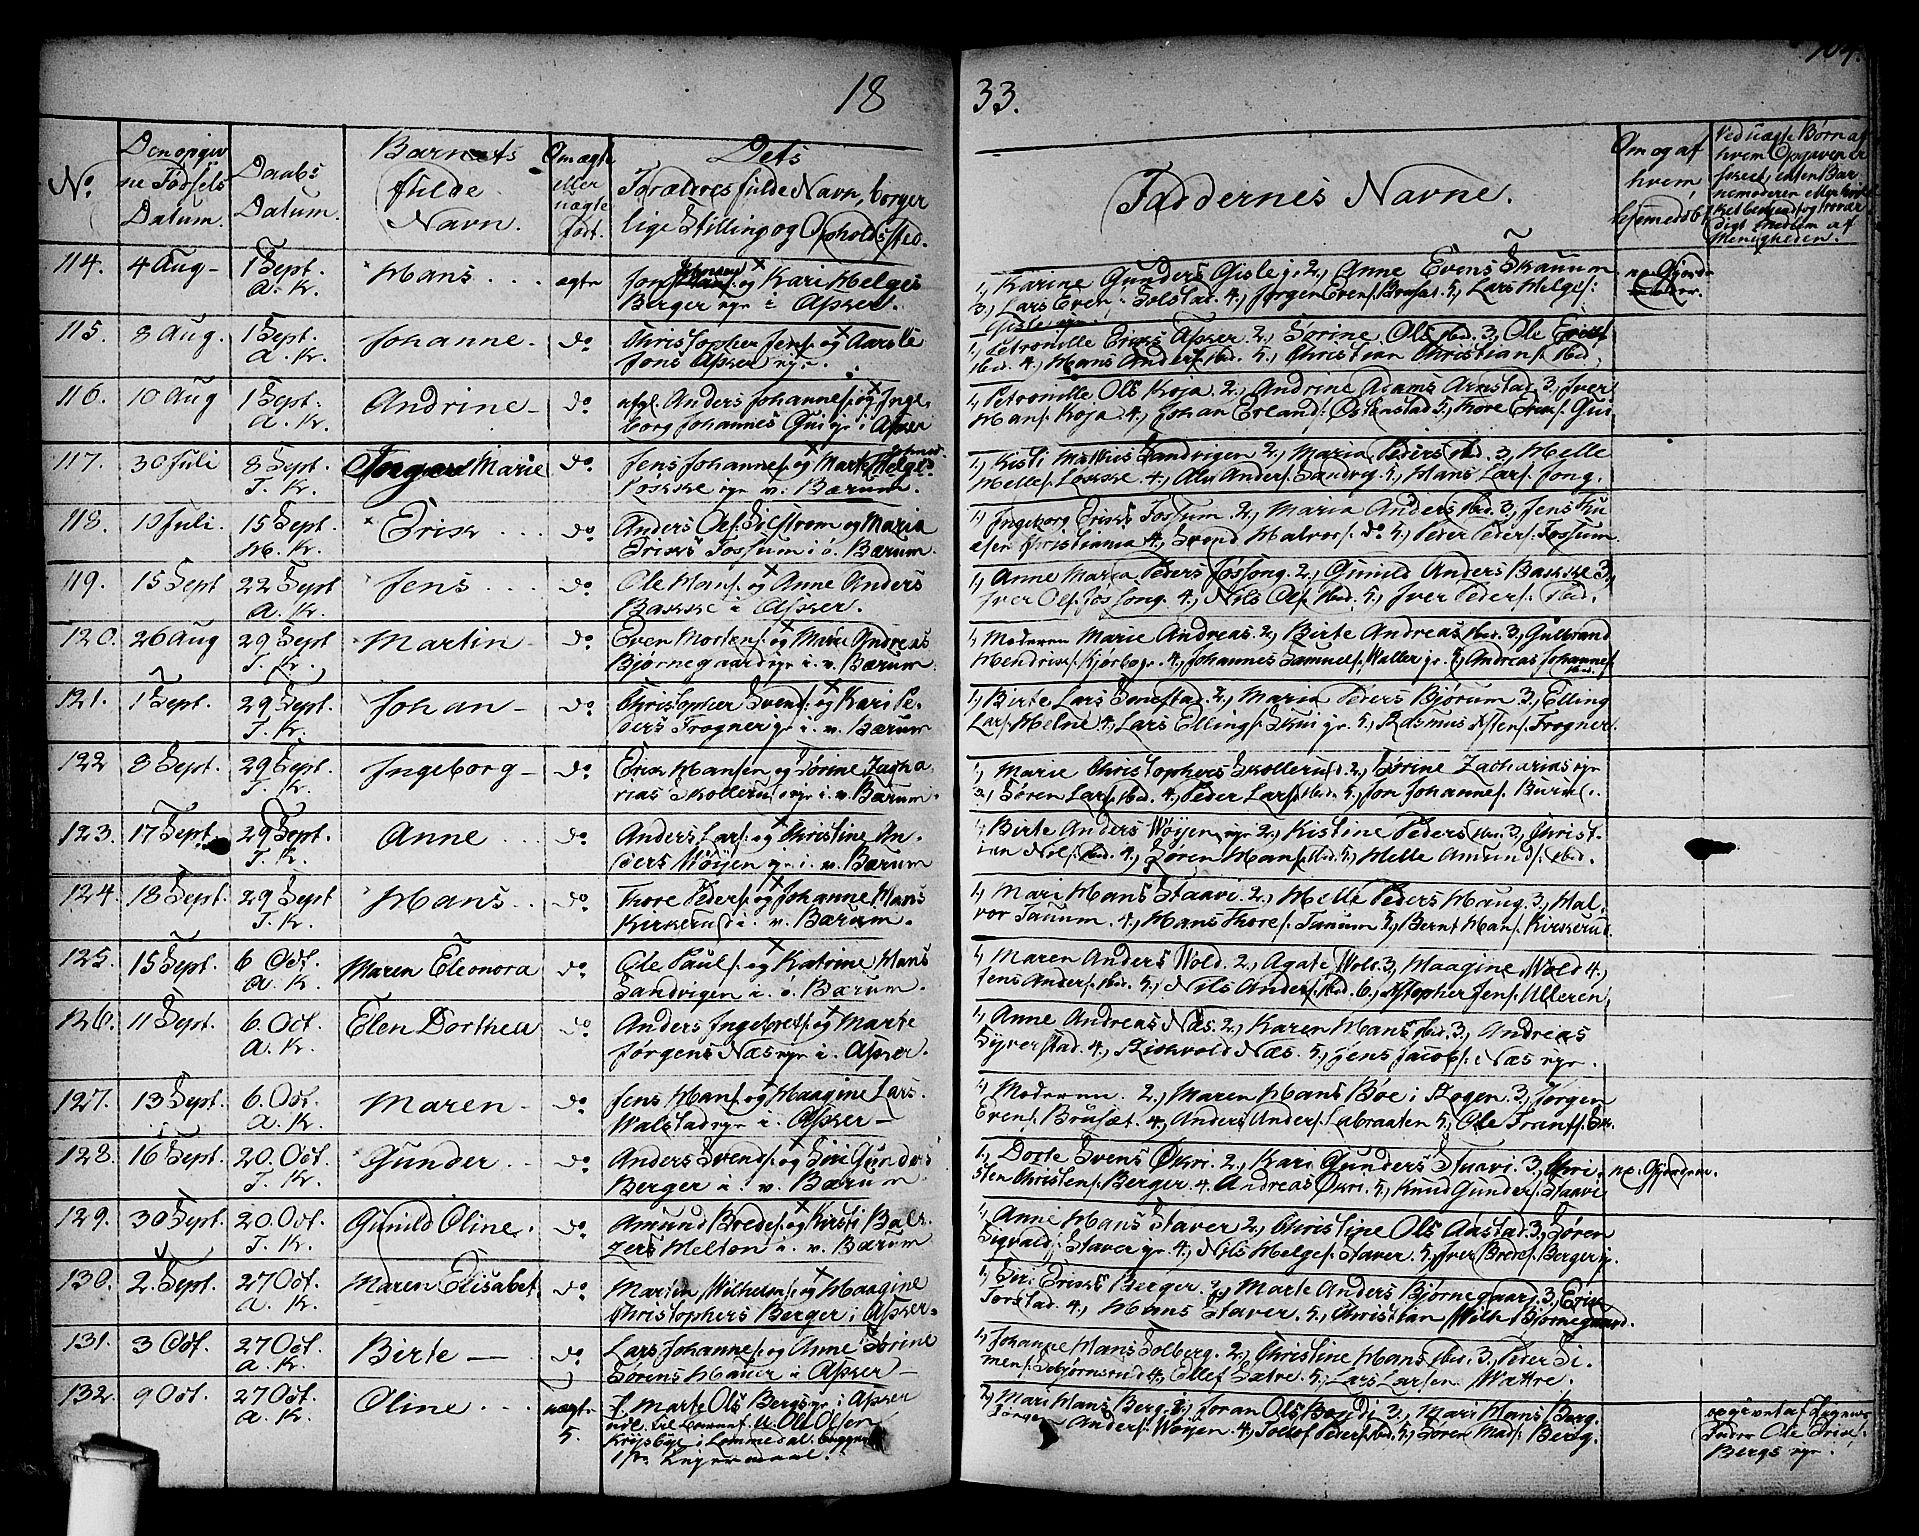 18
33.
104.
No.
Den opgiv
ne Fødsels
Datum.
Daabs
Datum.
Barnets
fulde
Navn.
Om ægte
eller
uægte
født.
Dets
Forældres fulde Navn, borger
lige Stilling og Opholdssted.
Faddernes Navne.
Om og af
hvem
hjemedøbt
Ved uægte Børn af
hvem Opgaven er
skeet, enten Bar
nemoderen eller hvil
ket bekiendt og trovær
digt Medlem af
Menigheden.
114. 4 Aug- 1 Sept. A. K. Hans ægte
Jon og Kari Helges
Berger eje i Asker.
1, Karine Gunders Gisle eje. 2, Anne Evens Skauum
3, Lars Even: Solstad. 4, Jørgen Evens. Brusæt. 5, Lars Helges:
Gisle eje.
115. 8 Aug. 1 Sept. A. K. Johanne. do
Christopher Jens. og Aasille
Jons Asker eje.
1, Petronille Eriks Asker 2, Sørine Ols ibid. 3, Ole
ibid. 4, Hans Anders. ibid. 5, Christian Christians. ibid.
116. 10 Aug 1 Sept. A. K. Andrine- do
afgl. Anders Johannes. og Inge,
borg Johannes Gui eje i Asker
1, Petronille Ols Koja 2, Andrine Adams Arnstad 3, Iver
Hans. Koja 4, Johan Erland: Østenstad 5, Thore Eriks. Gui
117. 30 Juli 8 Sept. T. K. Marie do
Jens Johannes. og Marthe Helges
Løkke eje v. Bærum.
1, Kisti Mathis Sandvigen 2, Maria Peders ibid. 3, Helle
Helles. Løkke 4, Ole Anders. Sandvig 5, Hans Lars. Jong.
118. 10 Juli. 15 Sept. H. K. Erik do
Anders Ols. Solstrøm og Maria
Eriks Fossum i ø. Bærum.
1, Ingeborg Eriks Fossum. 2, Maria Anders ibid. 3, Jens
Christiania 4, Svend Halvors. do 5, Peder Peders. Fossum.
119. 15 Sept 22 Sept A. K. Jens do
Ole Hans. og Anne Anders
Bakke i Asker.
1, Anne Maria Peders Fossong. 2, Gunild Anders Bakke 3,
Iver Ols. Fossong. 4, Nils Ols. ibid. 5, Iver Peders. ibid.
120. 26 Aug 29 Sept T. K. Martin do
Even Mortens. og Marie Andreas
Bjørnegaard eje i v. Bærum.
1, Moderen Marie Andreas. 2, Birte Andreas ibid. 3, Gulbrand
Hendriks. Kjørbo eje. 4, Johannes Samuels. Waller eje. 5, Andreas Johannes.
ibid.
121. 1 Sept. 29 Sept. T. K. Johan do
Christopher Svends. og Kari Pe-
ders Frogner eje i v. Bærum.
1, Birte Lars Sonestad. 2, Maria Peders Bjørum 3, Elling
Lars. Helme 4, Lars Ellings. Skui eje. 5, Rasmus Frogner.
122 8 Sept. 29 Sept. T. K. Ingeborg do
Erik Hansen og Sørine Zacha,
rias Skollerud eje i v. Bærum.
1, Marie Christophers Skollerud. 2, Sørine Zacharias eje
3, Søren Lars. ibid. 4, Peder Lars. ibid. 5, Jon Johannes. Burud.
123. 17 Sept. 29 Sept. T. K. Anne do
Anders Lars. og Christine An-
ders Wøyen eje i v. Bærum
1, Birte Anders Wøyen eje 2, Kistine Peders ibid. 3, Christ-
ian Nils. ibid. 4, Søren Hans. ibid. 5, Helle Amunds. ibid.
124. 18 Sept. 29 Sept T. K. Hans do
Thore Peders. og Johanne Hans
Kirkerud i v. Bærum.
1, Mari Hans Staavi 2, Helle Peders Haug. 3, Hal,
vor Tanum. 4, Hans Thores. Tanum 5, Bernt Hans. Kirkerud.
125. 15 Sept. 6 Oct. A. K. Maren Eleonora do
Ole Pauls. og Katrine Hans
Sandvigen i v. Bærum.
1, Maren Anders Wold. 2, Agate Wold. 3, Maagine Wold 4,
Jens Anders. ibid. 5, Nils Anders. ibid. 6, Jens. Ulleren,
126. 11 Sept. 6. Oct. A. K. Elen Dorthea do
Anders Ingebrets. og Marte
Jørgens Næs eje i Asker.
1, Anne Andreas Næs. 2, Karen Hans ibid. 3, Andreas
Syverstad. 4, Næs. 5, Jens Jacobs. Næs eje.
127. 13 Sept. 6. Oct. A. K. Maren- do
Jens Hans. og Maagine Lars
Walstad eje i Asker-
1, Moderen 2, Maren Hans Bøe i Røgen 3, Jørgen
Evens. Brusæt. 4, Anders Anders. Labraaten 5, Ole Frants.
128. 16 Sept. 20. Oct. T. K. Gunder do
Anders Svends. og Siri Gunders
Berger i v. Bærum.
1, Dorte Svens Økri. 2, Kari Gunders Staavi. 3, Chri,
sten Christens. Berger. 4. Andreas Økri. 5, Knud Gunders. Staavi
129. 30 Sept. 20. Oct. T. K. Gunild Oline. do
Amund Bredes. og Kirsti Bals-
gers Helton i v. Bærum
1, Anne Hans Staver 2, Christine Ols Aastad. 3, Søren
Sigvald: Staver eje. 4, Nils Helges. Staver. 5, Iver Bredes. Berger
130. 2. Sept. 27 Oct. A. K. Maren Elisabet. do
Martin Wilhelms. og Maagine
Christophers Berger i Asker.
1, Siri Eriks Berger. 2, Marte Anders Bjørnegaard. 3, Erik
Torstad. 4, Hans Staver. 5, Christian Wilh. Bjørnegaard.
131. 3 Oct. 27 Oct. A. K. Birte do
Lars Johannes. og Anne Sørine
Sørens Haur i Asker-
1, Johanne Hans Solberg. 2, Christine Hans ibid. 3, Peder Si-
mens. 4, Ellef Sætre. 5, Lars Larsen Wættre.
132. 9 Oct. 27 Oct. A. K. Oline uægte 5.
P. Marte Ols Bergs eje i Asker
Ole Olsen
i Lommedal
Leiermaal.
1, Mari Hans Berg. 2, Joran Ols Bondi 3, Mari Hans Berg.
Jørgen Anders. Wøyen. 4, Tollof Peders. ibid. 5, Søren Mads. Berg.
opgivet af
Ole
Bergs eje.